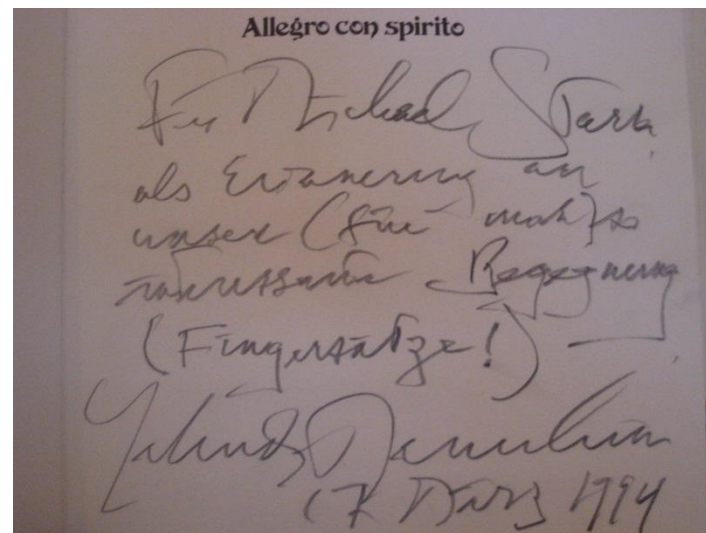 Allegro con spirito
Für Michael Stark
als Erinnerung an
unsere (für mich) so
interessante Begegnung
(Fingersätze!)
Yehudi Menuhin
17 März 1994